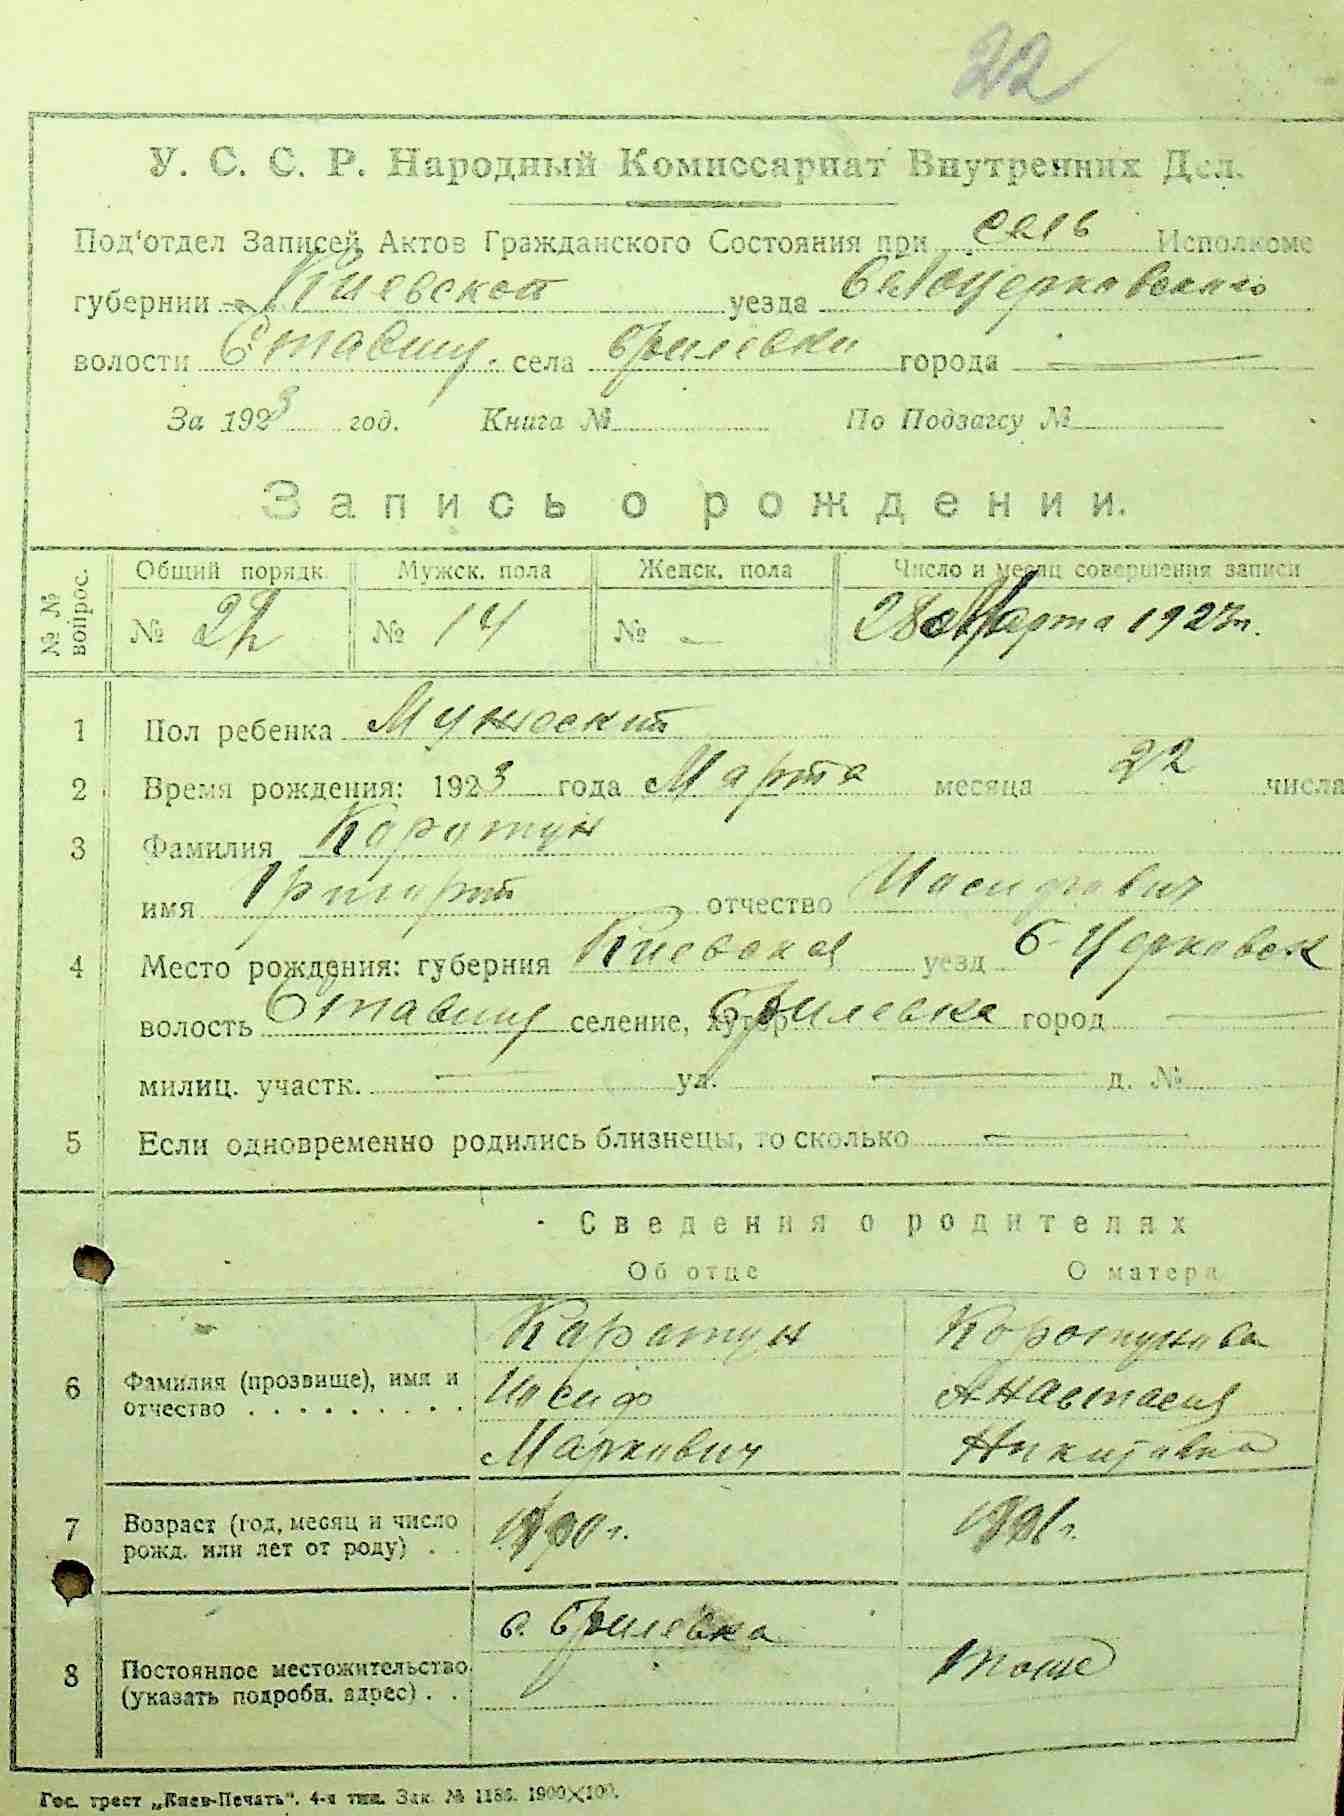 22
У. С. С. Р. Народный Комиссариат Внутренних Дел.
Под'отдел Записей Актов Гражданского Состояния при сель Исполкоме
губернии Киевской уезда Белоцерковского
волости Ставищ. села Брилевки города —
За 1923 год. Книга № По Подзагсу №
Запись о рождении.
№ № вопрос. Общий порядк. Мужск. пола Женск. пола Число и месяц совершения записи
№ 22 № 14 № - 28 Марта 1923 г.
1 Пол ребенка Мужеский
2 Время рождения: 1923 года Марта месяца 22 числа
3 Фамилия Каратун
имя Григорий отчество Иосифович
4 Место рождения: губерния Киевская уезд Б-Церковск
волость Ставищ селение, хутор Брилевка город —
милиц. участк. — ул. — д. №
5 Если одновременно родились близнецы, то сколько —
Сведения о родителях
Об отце О матери
6 Фамилия (прозвище), имя и отчество . . . . . . . . .
Каратун Коротунова
Иосиф Анастасия
Маркович Никитовна
7 Возраст (год, месяц и число рожд. или лет от роду) . .
8 Постоянное местожительство (указать подробн. адрес) . .
с. Брилевка тоже
Гос. трест „Киев-Печать“. 4-я тип. Зак. № 1186. 1900×100.